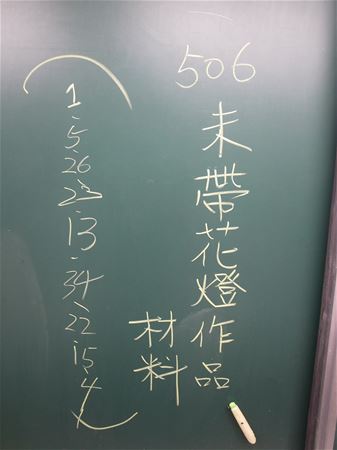 506
未帶花燈作品
材料
(1、5、26、23、13、34、22、15、4)